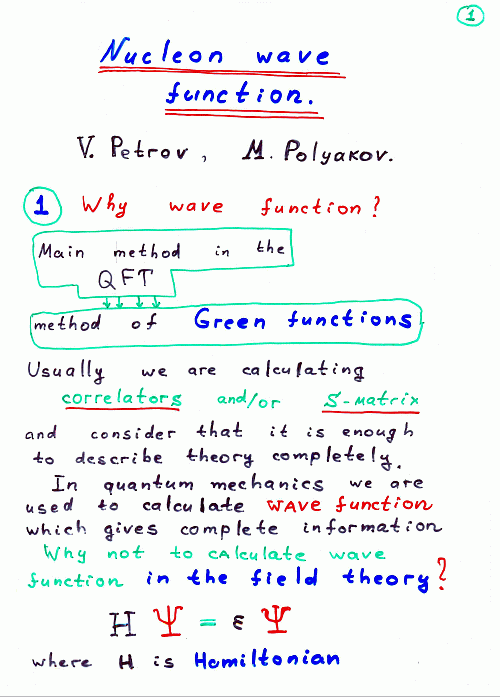 1
Nucleon wave
function.
V. Petrov, M. Polyakov.
1 Why wave function?
Main method in the
QFT
method of Green functions
Usually we are calculating
correlators and/or S-matrix
and consider that it is enough
to describe theory completely.
In quantum mechanics we are
used to calculate wave function
which gives complete information
Why not to calculate wave
function in the field theory?
H Ψ = ε Ψ
where H is Hamiltonian